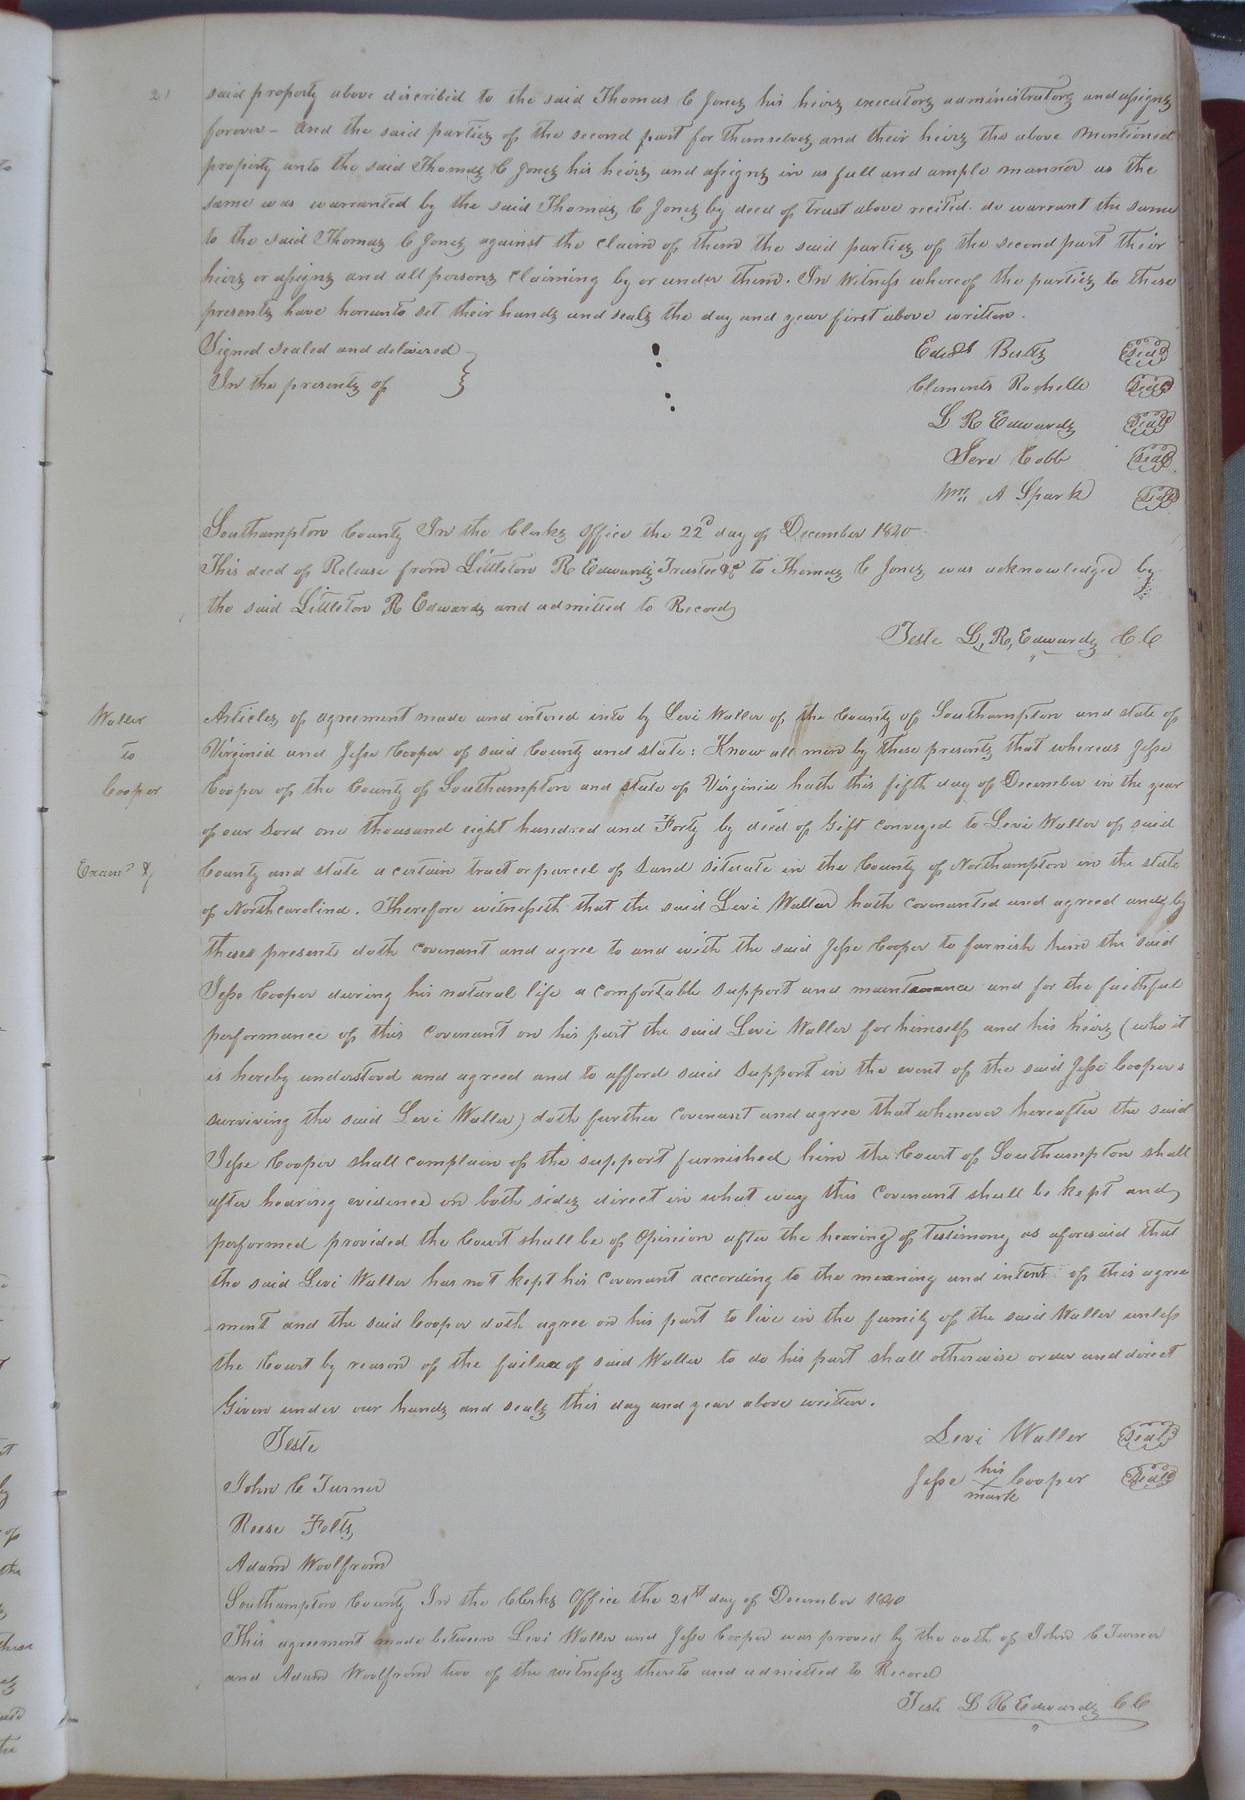 21
said property above discribed to the said Thomas C Jones his heirs executors administrators and assigns
forever - and the said parties of the second part for themselves and their heirs the above mentioned
property unto the said Thomas C Jones his heirs and assigns in as full and ample manner as the
same was warranted by the said Thomas C Jones by deed of trust above recited do warrant the same
to the said Thomas C Jones against the claim of them the said parties of the second part their
heirs or assigns and all persons claiming by or under them. In Witness whereof the parties to these
presents have hereunto set their hands and seals the day and year first above written.
Signed sealed and delivered
In the presents of
Butts Seal
Clements Rochelle Seal
L R Edwards Seal
Cobb Seal
Wm A Spark Seal
Southampton County In the Clerks Office the 22d day of December 1840
This deed of Release from Littleton R Edwards Trustee &c to Thomas C Jones was acknowledged by
the said Littleton R Edwards and admitted to Record
Teste L, R, Edwards C C
Waller
to
Cooper
Examd &
Articles of agreement made and intered into by Levi Waller of the County of Southampton and state of
Virginia and Jesse Cooper of said County and state: Know all men by these presents that whereas Jesse
Cooper of the County of Southampton and state of Virginia hath this fifth day of December in the year
of our Lord one thousand eight hundred and Forty by deed of Gift conveyed to Levi Waller of said
County and state a certain tract or parcel of Land situate in the County of Northampton in the state
of Northcarolina. Therefore witnesseth that the said Levi Waller hath covenanted and agreed and by
these presents doth covenant and agree to and with the said Jesse Cooper to furnish him the said
Jesse Cooper during his natural life a comfortable support and and for the faithful
performance of this covenant on his part the said Levi Waller for himself and his heirs (who it
is hereby understood and agreed and to afford said support in the event of the said Jesse Coopers
surviving the said Levi Waller) doth further covenant and agree that whenever hereafter the said
Jesse Cooper shall complain of the support furnished him the Court of Southampton shall
after hearing evidence on both sides direct in what way this covenant shall be kept and
performed provided the Court shall be of Opinion after the hearing of Testimony as aforesaid that
the said Levi Waller has not kept his covenant according to the meaning and intent of this agree
-ment and the said Cooper doth agree on his part to live in the family of the said Waller unless
the Court by reason of the of said Waller to do his part shall otherwise order and direct
Given under our hands and seals this day and year above written.
Teste
Levi Waller Seal
Jesse his mark Cooper Seal
John C Turner
Reese Felts
Adam Woolfrom
Southampton County In the Clerks Office the 21st day of December 1840
This agreement made between Levi Waller and Jesse Cooper was proved by the oath of John C Turner
and Adam Woolfrom two of the witnesses thereto and admitted to Record
Teste L R Edwards C C